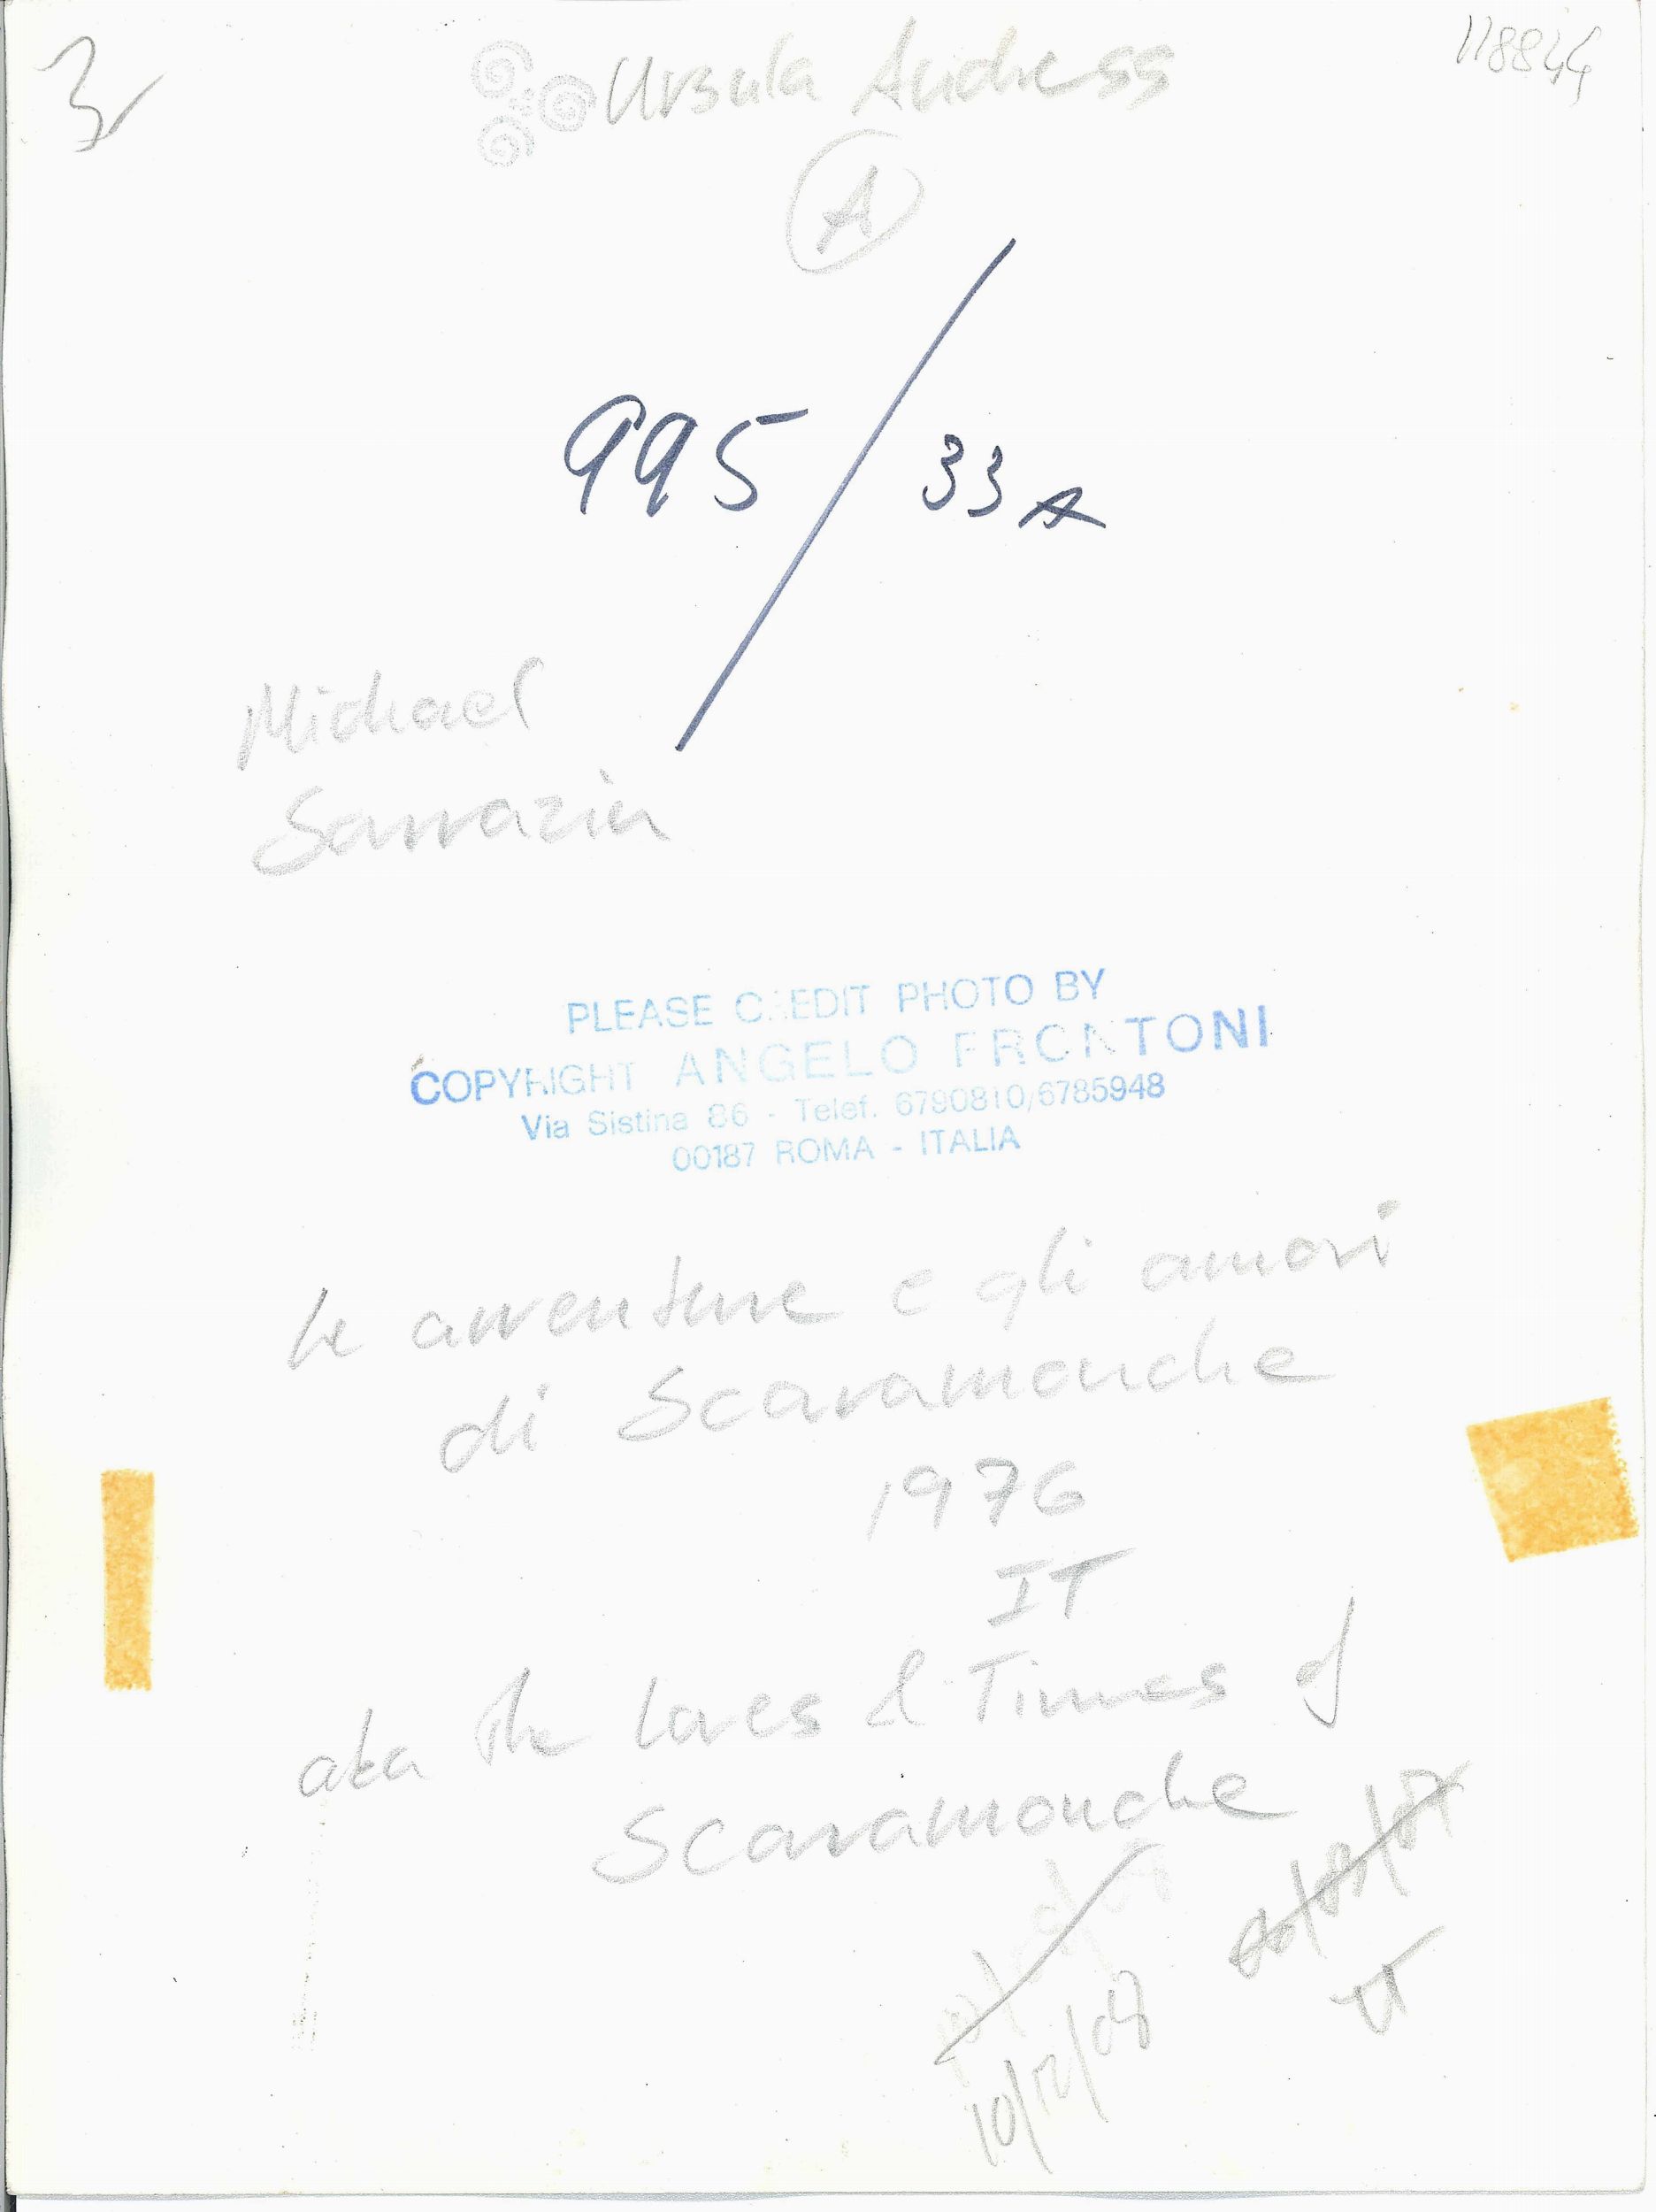 3
118844
Ursula Andress
A
995 / 33A
Michael
Sarrazin
PLEASE CREDIT PHOTO BY
COPYRIGHT ANGELO FRONTONI
Via Sistina 86 - Telef. 6790810/6785948
00187 ROMA - ITALIA
le avventure e gli amori
di Scaramouche
1976
IT
aka The Loves & Times of
Scaramouche
10/12/08